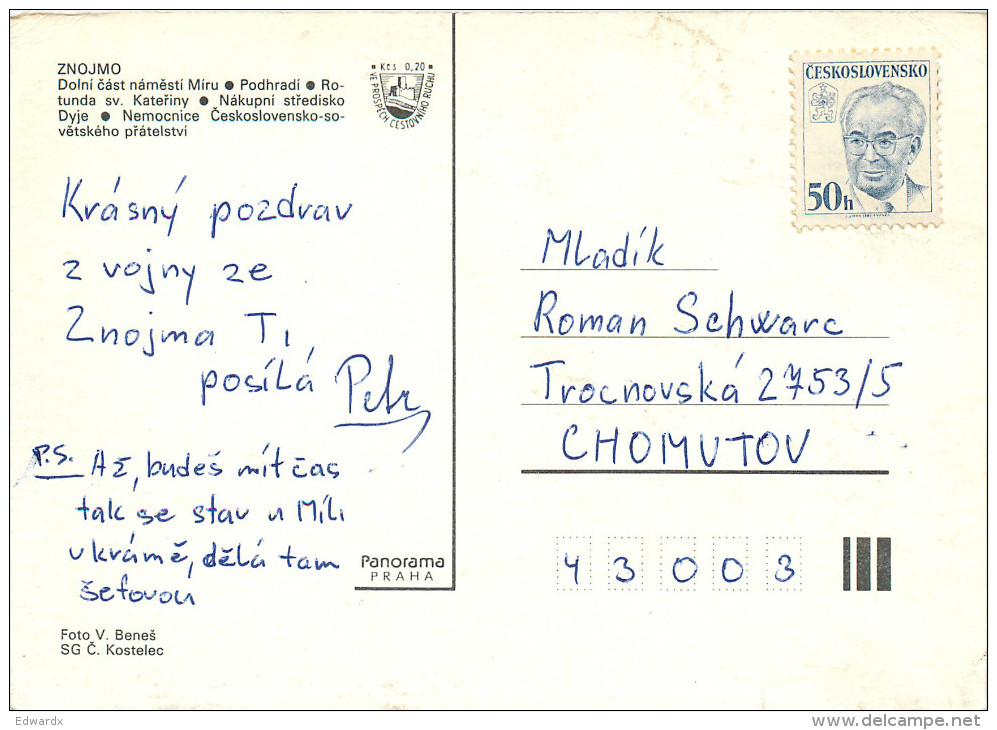 ZNOJMO
Dolní část náměstí Míru ● Podhradí ● Ro-
tunda sv. Kateřiny ● Nákupní středisko
Dyje ● Nemocnice Československo-so-
větského přátelství
Kčs 0,20
VE PROSPĚCH CESTOVNÍHO RUCHU
ČESKOSLOVENSKO
50h
Krásný pozdrav
z vojny ze
Znojma Ti
posílá Petr
P.S. Až, budeš mít čas
tak se stav u Míli
v krámě, dělá tam
šéfovou
Mladík
Roman Schwarc
Trocnovská 2753/5
CHOMUTOV
43003
Panorama
PRAHA
Foto V. Beneš
SG Č. Kostelec
Edwardx
delcampe.net